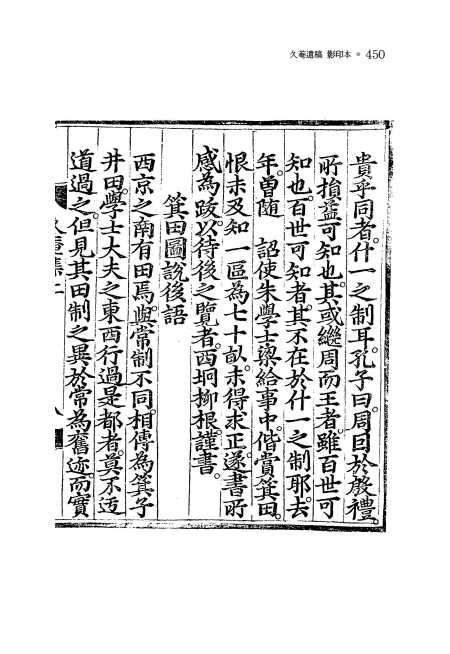 久菴遺稿 影印本 • 450
貴乎同者什一之制耳孔子曰周因於殷禮
所損益可知也其或繼周而王者雖百世可
知也百世可知者其不在於什一之制耶去
年曽随 詔使朱學士梁給事中偕賞箕田
恨未及知一區為七十畝未得求正遂書所
感為跋以待後之覽者西坰柳根謹書
箕田圖說後語
西京之南有田焉與常制不同相傳為箕子
井田學士大夫之東西行過是都者莫不迃
道過之但見其田制之異於常為舊迹而實
久菴集二
八